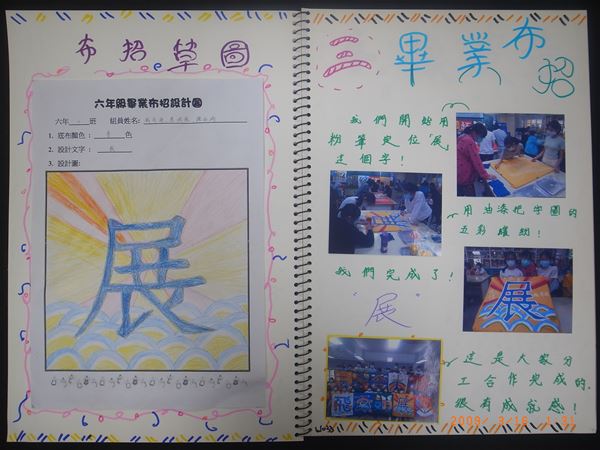 布招草圖
六年級畢業布招設計圖
六年 班 組員姓名:
1. 底布顏色: 色
2. 設計文字: 展
3. 設計圖:
展
三畢業布招
我們開始用
粉筆定位「展」
這個字!
用油漆把字圖的
五彩繽紛!
我們完成了!
"展"
展
展
這是大家分
工合作完成的,
很有成就感!
2009/ 3/16 1:31